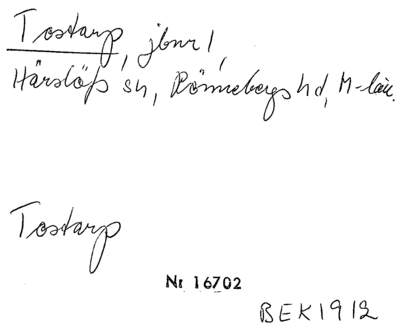 Tostarp, jbnr 1,
Härslöfs sn, Rönnebergs hd, M-län.
Tostarp
Nr 16702
BEK 1912